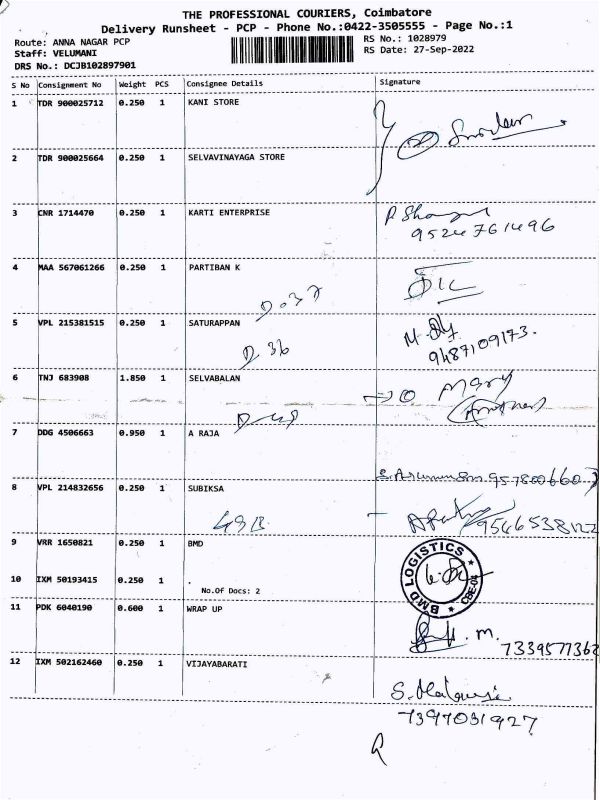 THE PROFESSIONAL COURIERS, Coimbatore
Delivery Runsheet - PCP - Phone No.:0422-3505555 - Page No.:1
Route: ANNA NAGAR PCP
Staff: VELUMANI
DRS No.: DCJB102897901
RS No.: 1028979
RS Date: 27-Sep-2022
S No Consignment No Weight PCS Consignee Details Signature
1 TDR 900025712 0.250 1 KANI STORE
2 TDR 900025664 0.250 1 SELVAVINAYAGA STORE
3 CNR 1714470 0.250 1 KARTI ENTERPRISE
9524761496
4 MAA 567061266 0.250 1 PARTIBAN K
D.37
5 VPL 215381515 0.250 1 SATURAPPAN
D 36
9487109173.
6 TNJ 683908 1.850 1 SELVABALAN
Mary
7 DDG 4506663 0.950 1 A RAJA
8 VPL 214832656 0.250 1 SUBIKSA
9546538122
9 VRR 1650821 0.250 1 BMD
10 IXM 50193415 0.250 1 .
No.Of Docs: 2
BMD LOGISTICS
CBE-04
11 PDK 6040190 0.600 1 WRAP UP
7339577362
12 IXM 502162460 0.250 1 VIJAYABARATI
7397031927